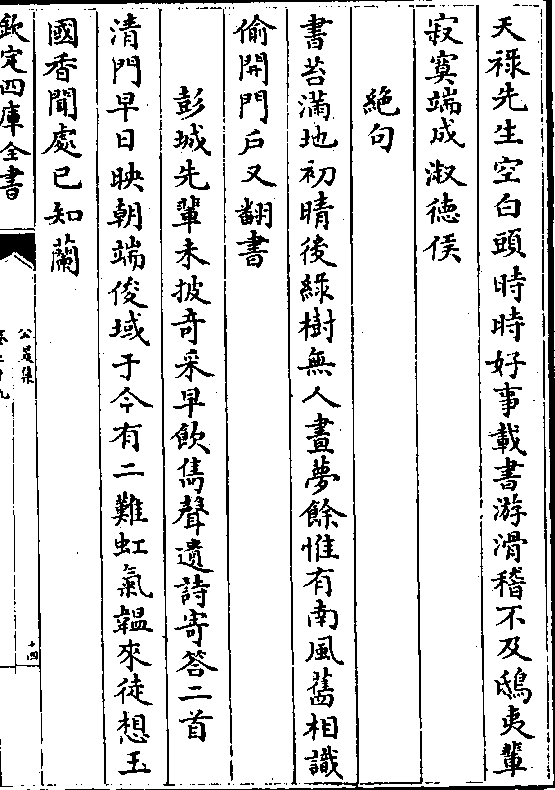 天祿先生空白頭時時好事載書游滑稽不及鴟夷輩
寂寞端成淑徳侯
絶句
書苔滿地初晴後綠樹無人晝夢餘惟有南風舊相識
偷開門戸又翻書
彭城先輩未披竒采早飲雋聲遺詩寄答二首
清門早日映朝端俊域于今有二難虹氣韞來徒想玉
國香聞處已知蘭
欽定四庫全書
公是集
卷二十九
十四